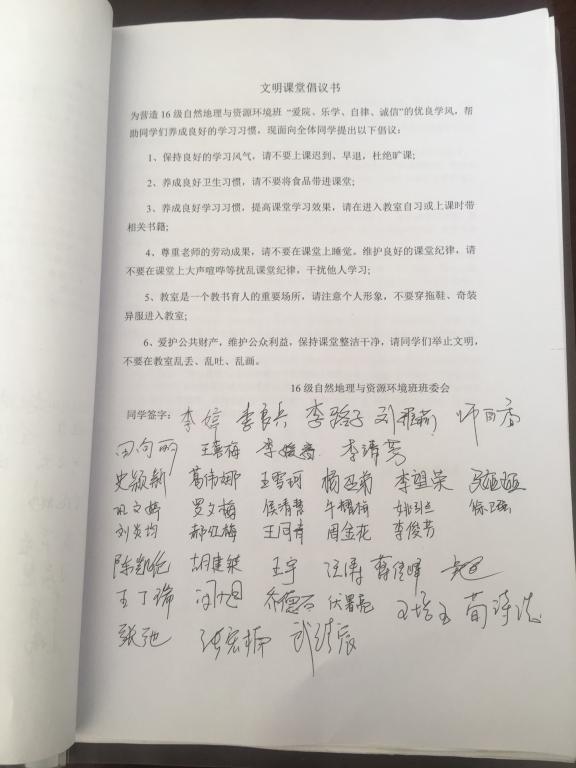 文明课堂倡议书
为营造16级自然地理与资源环境班“爱院、乐学、自律、诚信”的优良学风，帮
助同学们养成良好的学习习惯，现面向全体同学提出以下倡议：
1、保持良好的学习风气，请不要上课迟到、早退，杜绝旷课;
2、养成良好卫生习惯，请不要将食品带进课堂;
3、养成良好学习习惯，提高课堂学习效果，请在进入教室自习或上课时带
相关书籍;
4、尊重老师的劳动成果，请不要在课堂上睡觉。维护良好的课堂纪律，请
不要在课堂上大声喧哗等扰乱课堂纪律，干扰他人学习;
5、教室是一个教书育人的重要场所，请注意个人形象，不要穿拖鞋、奇装
异服进入教室;
6、爱护公共财产，维护公众利益，保持课堂整洁干净，请同学们举止文明，
不要在教室乱丢、乱吐、乱画。
16级自然地理与资源环境班班委会
同学签字： 李婷 李良兵
田向丽 王喜梅 李靖芳
史颖新 葛伟娜 王雪珂 李望荣
罗文梅 侯清慧 徐卫强
刘炎均 郝红梅 王问青 周金花 李俊芳
陈凯伦 胡建斌 王宇 汪涛
王丁瑞 闫旭 乔德石 伏署亮
张弛 张宏楠